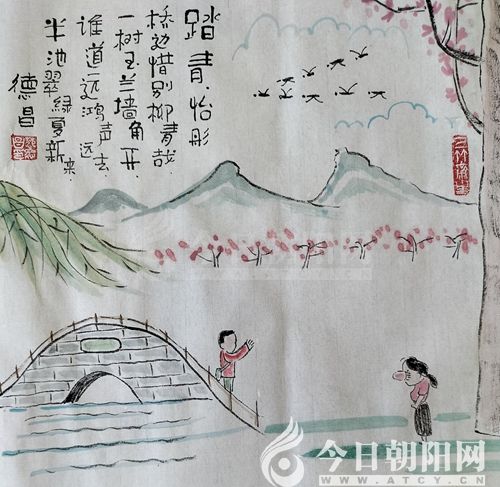 踏青·怡彤
桥边惜别柳青哉
一树玉兰墙角开
谁道远鸿声远去
半池翠绿夏新来
德昌
今日朝阳网
WWW.ATCY.CN